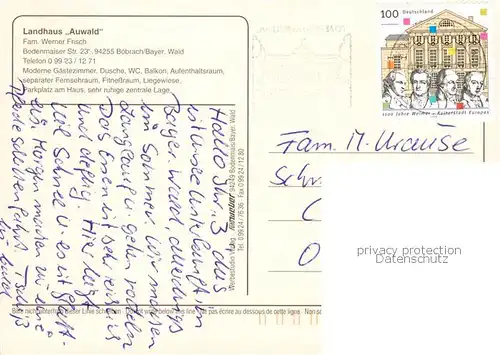 Landhaus „Auwald“
Fam. Werner Frisch
Bodenmaiser Str. 23, 94255 Böbrach/Bayer. Wald
Telefon 0 99 23 / 12 71
Moderne Gästezimmer, Dusche, WC, Balkon, Aufenthaltsraum,
separater Fernsehraum, Fitneßraum, Liegewiese,
Parkplatz am Haus, sehr ruhige zentrale Lage.
100
Deutschland
1100 Jahre Weimar - Kulturstadt Europas
Hallo Ihr 3, das
ist unsere Unterkunft im
Bayer. Wald, allerdings
im Sommer. Wir machen
Langlauf u. gehen rodeln
Das Essen ist sehr reichl.
und üppig. Hier liegt
viel Schnee u. es ist glatt.
Morgen machen wir eine
Werbestudio Verlag
94249 Bodenmais/Bayer. Wald
Tel. 0 99 24 / 76 36 · Fax 0 99 24 / 12 80
Fam. M. Krause
Sch
O
privacy protection
Datenschutz
Bitte nicht unterhalb dieser Linie schreiben
Do not write below this line
Ne pas écrire au dessous de cette ligne